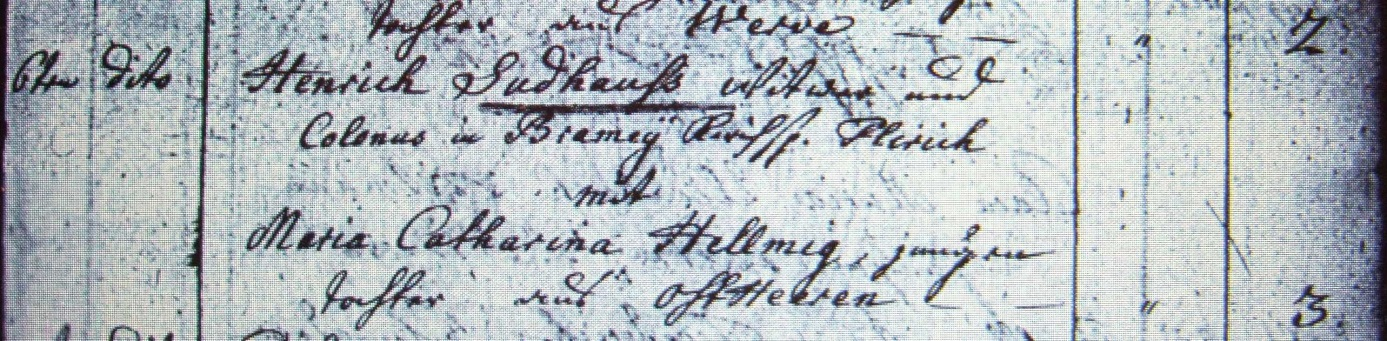 Tochter aus Werve — — 2
6ten dito Henrich Sudhauß Witwer und
Colonus in Bramey Kirchsp. Flirich
mit
Maria Catharina Hellmig, jungen
Tochter aus OstHeeren — — " 3.